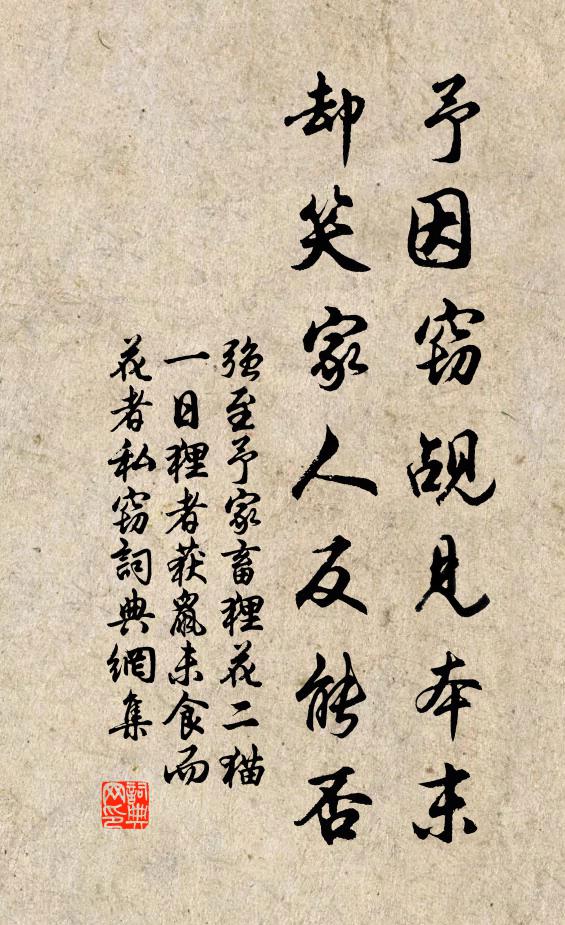 予因窈觇见本末
却笑家人反能否
强至予家畜狸花二猫
一日狸者获鼠未食而
花者私窃詞典網集
詞典网印